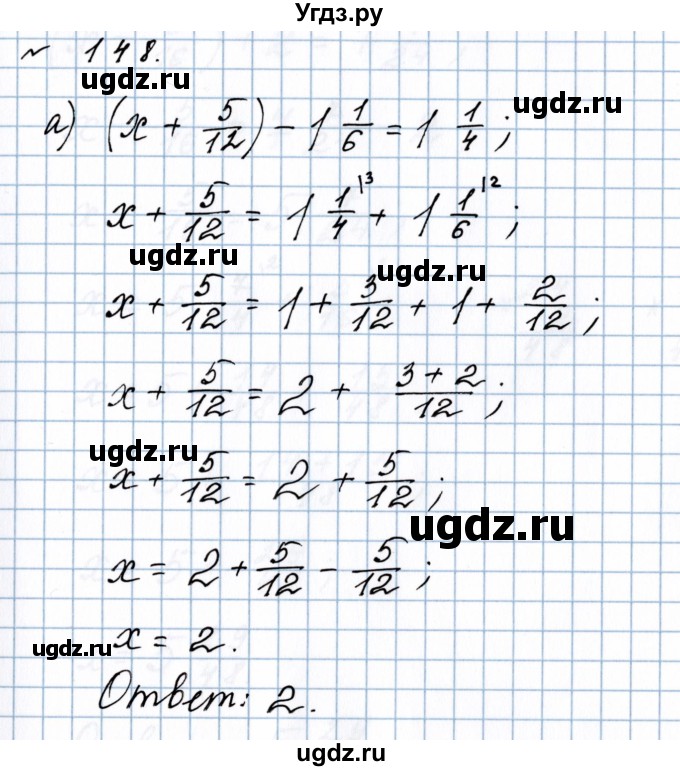 Угдз.ру
№ 148.
ugdz.ru
а) (x + 5/12) - 1 1/6 = 1 1/4;
ugdz.ru
x + 5/12 = 1 1/4|3 + 1 1/6|2;
ugdz.ru
ugdz.ru
x + 5/12 = 1 + 3/12 + 1 + 2/12;
x + 5/12 = 2 + (3 + 2)/12;
ugdz.ru
x + 5/12 = 2 + 5/12;
ugdz.ru
x = 2 + 5/12 - 5/12;
ugdz.ru
x = 2.
Ответ: 2.
ugdz.ru